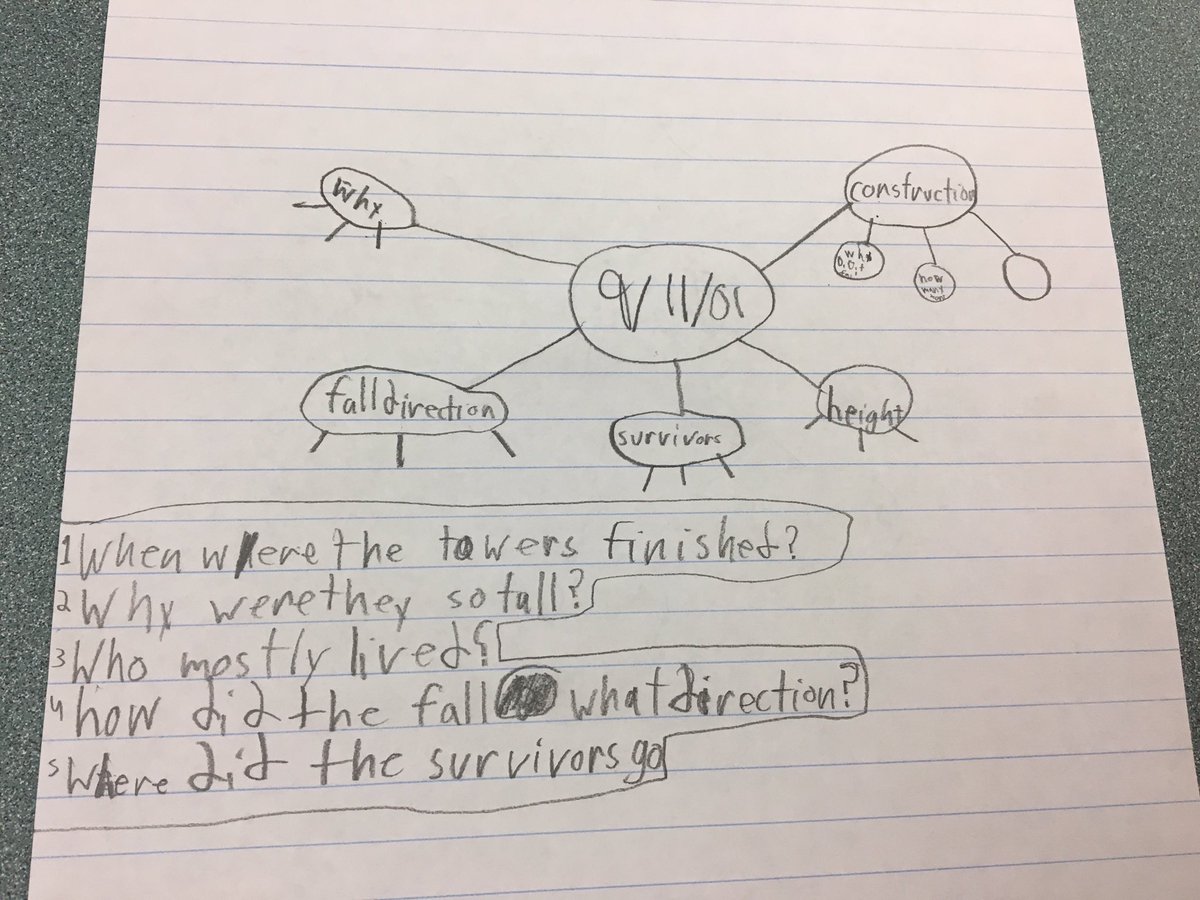 why
construction
why
Did it
fall
how
many
9/11/01
falldirection
survivors
height
1 When were the towers finished?
2 Why were they so tall?
3 Who mostly lived?
4 how did the fall what direction?
5 Where did the survivors go